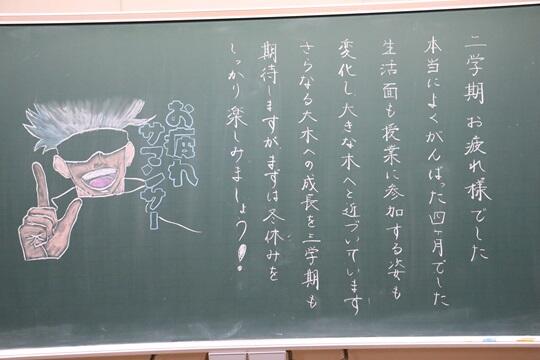 二学期 お疲れ様でした
本当によくがんばった四ヶ月でした
生活面も授業に参加する姿も
変化し大きな木へと近づいています
さらなる大木への成長を三学期も
期待しますがまずは冬休みを
しっかり楽しみましょう!
お疲れ
サマンサー